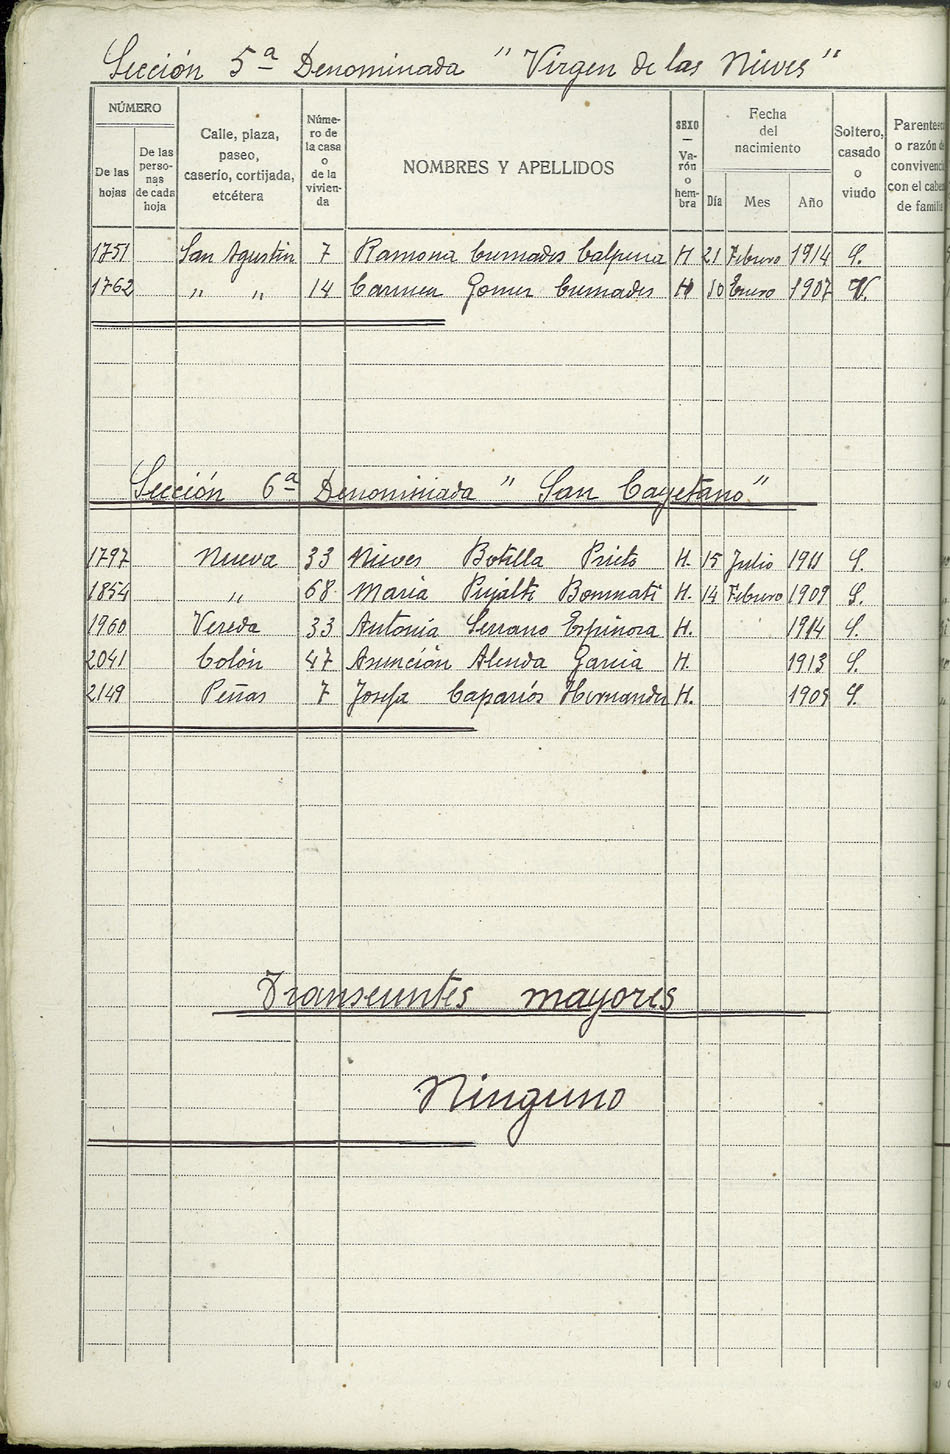 Sección 5ª Denominada "Virgen de las Nieves"
NÚMERO
De las hojas
De las perso-nas de cada hoja
Calle, plaza, paseo, caserío, cortijada, etcétera
Núme-ro de la casa o de la vivien-da
NOMBRES Y APELLIDOS
SEXO — Va-rón o hem-bra
Fecha del nacimiento
Día Mes Año
Soltero, casado o viudo
Parentesco o razón de convivencia con el cabeza de familia
1751 San Agustín 7 Ramona Cremades Calpena H 21 Febrero 1914 S.
1762 " " 14 Carmen Gomez Cremades H 10 Enero 1907 V.
Sección 6ª Denominada "San Cayetano"
1797 Nueva 33 Nieves Botella Prieto H. 15 Julio 1911 S.
1854 " 68 María Pujalte Bonmatí H. 14 Febrero 1909 S.
1960 Vereda 33 Antonia Serrano Espinosa H. 1914 S.
2041 Colón 47 Asunción Alenda García H. 1913 S.
2149 Peñas 7 Josefa Caparrós Hernandez H. 1905 S.
Transeuntes mayores
Ninguno